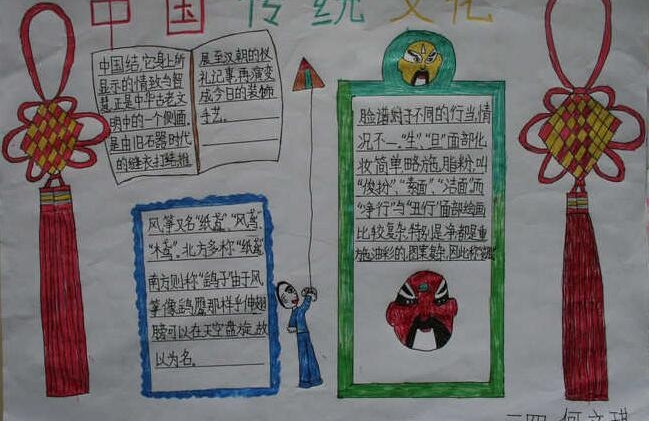 中国传统文化
中国结,它身上所
显示的情致与智
慧正是中华古老文
明中的一个侧面.
是由旧石器时代
的缝衣打结,推
展至汉朝的仪
礼记事,再演变
成今日的装饰
手艺.
风筝又名“纸鸢”、“风鸢”、
“木鸢”.北方多称“纸鸢”
南方则称“鹞子”由于风
筝像鹞鹰那样乍伸翅
膀可以在天空盘旋,故
以为名.
脸谱对于不同的行当,情
况不一.“生”、“旦”面部化
妆简单,略施脂粉,叫
“俊扮”、“素面”、“洁面”.而
“净行”与“丑行”面部绘画
比较复杂,特别是净,都是重
施油彩的,图案复杂,因此称
二四 何文琪